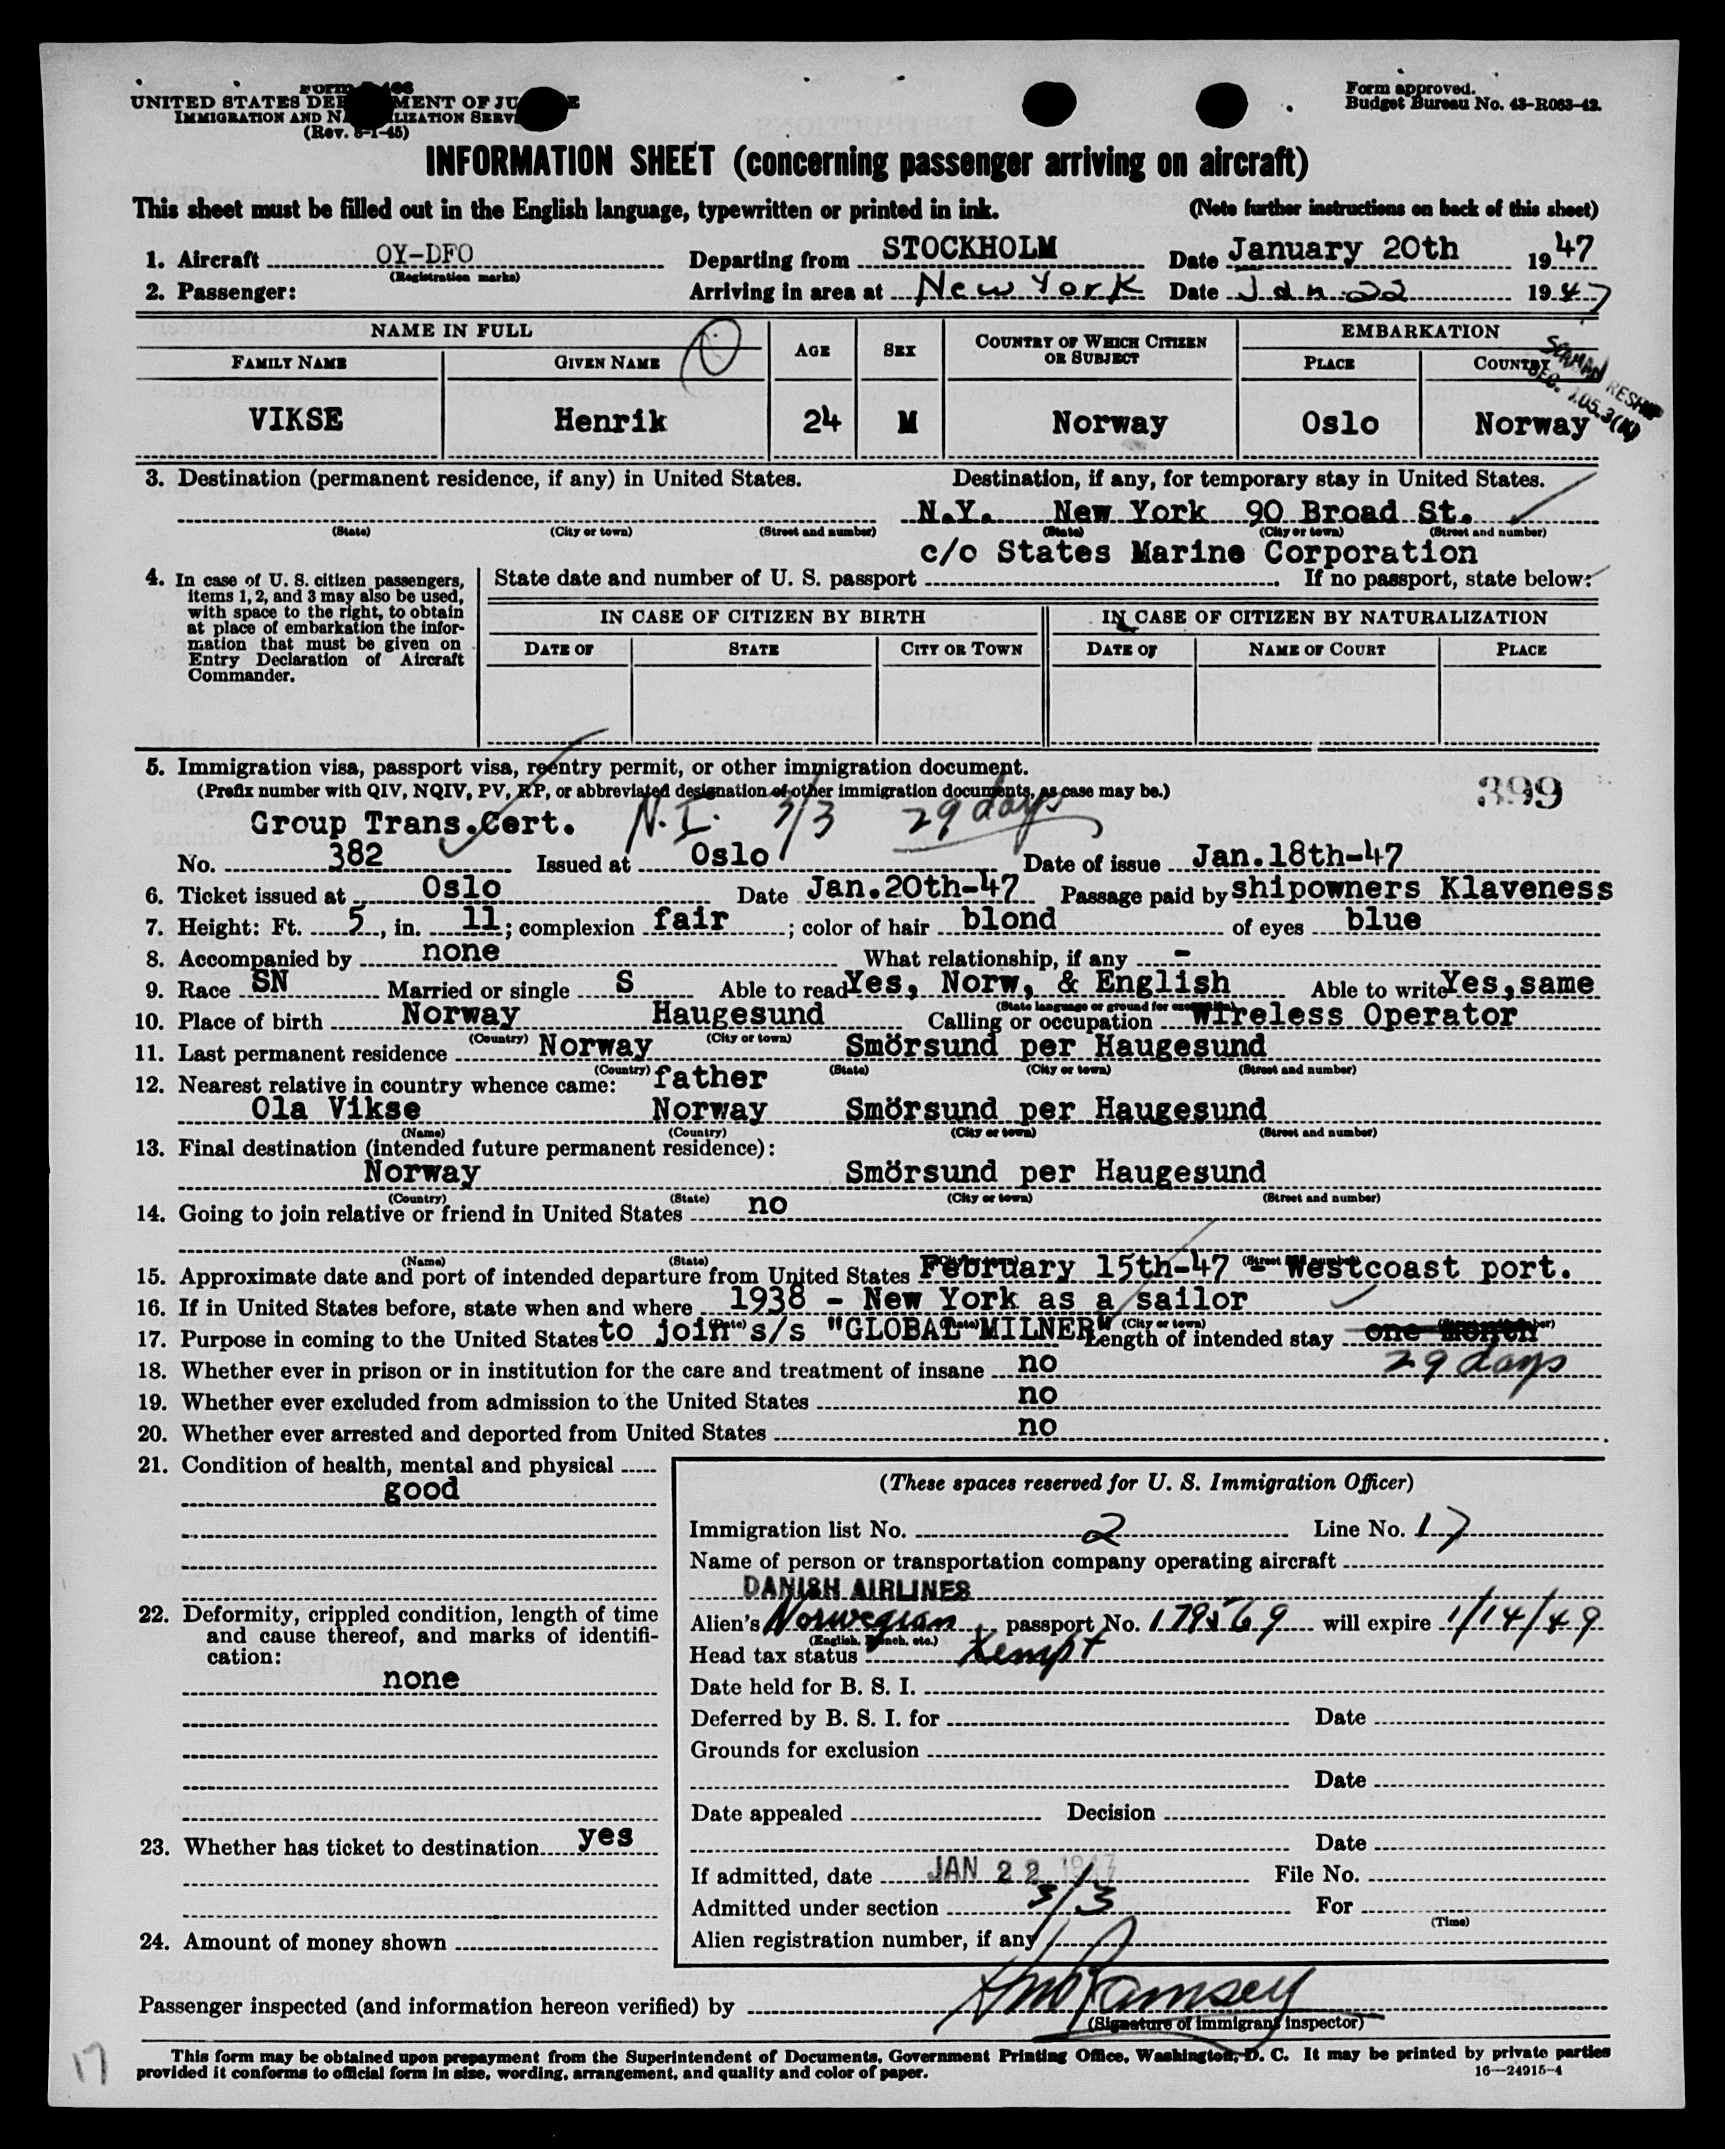 UNITED STATES DEPARTMENT OF JUSTICE
IMMIGRATION AND NATURALIZATION SERVICE
(Rev. 8-1-45)
Form approved.
Budget Bureau No. 43-R063-42.
INFORMATION SHEET (concerning passenger arriving on aircraft)
This sheet must be filled out in the English language, typewritten or printed in ink. (Note further instructions on back of this sheet)
1. Aircraft OY-DFO Departing from STOCKHOLM Date January 20th 1947
(Registration marks)
2. Passenger: Arriving in area at New York Date Jan 22 1947
NAME IN FULL AGE SEX COUNTRY OF WHICH CITIZEN OR SUBJECT EMBARKATION
FAMILY NAME GIVEN NAME PLACE COUNTRY
SEAMAN RESHIP
SEC. 105.3(A)
VIKSE Henrik 24 M Norway Oslo Norway
3. Destination (permanent residence, if any) in United States. Destination, if any, for temporary stay in United States.
N.Y. New York 90 Broad St.
(State) (City or town) (Street and number) (State) (City or town) (Street and number)
c/o States Marine Corporation
4. In case of U. S. citizen passengers, items 1, 2, and 3 may also be used, with space to the right, to obtain at place of embarkation the information that must be given on Entry Declaration of Aircraft Commander.
State date and number of U. S. passport . If no passport, state below:
IN CASE OF CITIZEN BY BIRTH IN CASE OF CITIZEN BY NATURALIZATION
DATE OF STATE CITY OR TOWN DATE OF NAME OF COURT PLACE
5. Immigration visa, passport visa, reentry permit, or other immigration document.
(Prefix number with QIV, NQIV, PV, RP, or abbreviated designation of other immigration documents, as case may be.)
399
Group Trans.Cert. N.I. 3/3 29 days
No. 382 Issued at Oslo Date of issue Jan.18th-47
6. Ticket issued at Oslo Date Jan.20th-47 Passage paid by shipowners Klaveness
7. Height: Ft. 5, in. 11; complexion fair; color of hair blond of eyes blue
8. Accompanied by none What relationship, if any -
9. Race SN Married or single S Able to read Yes, Norw, & English Able to write Yes, same
(State language or ground for exemption)
10. Place of birth Norway Haugesund Calling or occupation Wireless Operator
(Country) (City or town)
11. Last permanent residence Norway Smörsund per Haugesund
(Country) (State) (City or town) (Street and number)
12. Nearest relative in country whence came: father
Ola Vikse Norway Smörsund per Haugesund
(Name) (Country) (City or town) (Street and number)
13. Final destination (intended future permanent residence):
Norway Smörsund per Haugesund
(Country) (State) (City or town) (Street and number)
14. Going to join relative or friend in United States no
(Name) (State) (City or town) (Street and number)
15. Approximate date and port of intended departure from United States February 15th-47 - Westcoast port.
16. If in United States before, state when and where 1938 - New York as a sailor
(Date) (State) (City or town) (Street and number)
17. Purpose in coming to the United States to join s/s "GLOBAL MILNER" Length of intended stay one month
29 days
18. Whether ever in prison or in institution for the care and treatment of insane no
19. Whether ever excluded from admission to the United States no
20. Whether ever arrested and deported from United States no
21. Condition of health, mental and physical
good
22. Deformity, crippled condition, length of time and cause thereof, and marks of identification:
none
23. Whether has ticket to destination yes
24. Amount of money shown
(These spaces reserved for U. S. Immigration Officer)
Immigration list No. 2 Line No. 17
Name of person or transportation company operating aircraft
DANISH AIRLINES
Alien's Norwegian passport No. 179569 will expire 1/14/49
(English, French, etc.)
Head tax status Xempt
Date held for B. S. I.
Deferred by B. S. I. for Date
Grounds for exclusion
Date
Date appealed Decision
Date
If admitted, date JAN 22 1947 File No.
Admitted under section 3/3 For
(Time)
Alien registration number, if any
Passenger inspected (and information hereon verified) by Ramsey
(Signature of immigrant inspector)
17
This form may be obtained upon prepayment from the Superintendent of Documents, Government Printing Office, Washington, D. C. It may be printed by private parties
provided it conforms to official form in size, wording, arrangement, and quality and color of paper. 16—24915-4